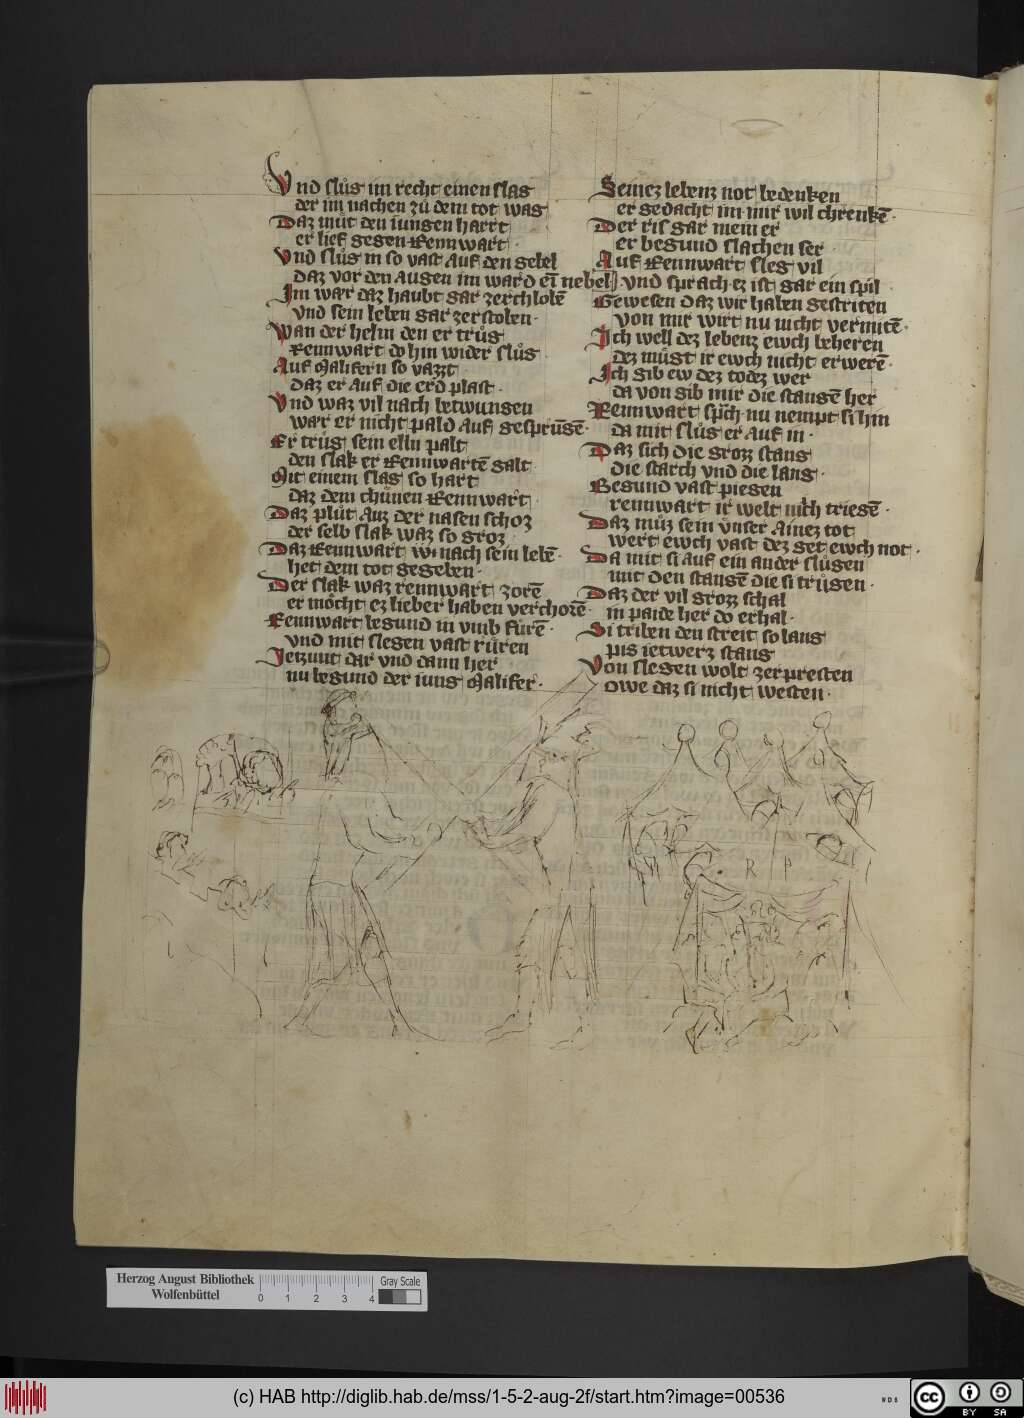 Vnd slůg im recht einen slag
der im nachen zů dem tot wag
Daz můt den iungen harrt
er lief gegen Rennwart ·
Vnd slůg in so vast auf den gebel
daz vor den augen im ward eī nebel
Im war daz haubt gar zerchlobē
vnd sein leben gar zerstoben·
Wan der helm den er trůg
Rennwart do hin wider slůg ·
Auf Malifern so vazzt
daz er auf die erd plast ·
Vnd waz vil nach betwungen
war er nicht pald auf gesprūgē·
Er trůg sein elln palt
den slak er Rennwartē galt
Mit einem slag so hart
daz dem chůnen Rennwart
Daz plůt auz der nasen schoz
der selb slak waz so groz
Daz Rennwart vil nach sein lebē·
het dem tot gegeben·
Der slak waz rennwart zorē
er mőcht ez lieber haben verchorē·
Rennwart begund in vmb fůrē·
vnd mit slegen vast růren
Ietzunt dar vnd dann her
nu begund der iung Malifer·
Seinez lebenz not bedenken
er gedacht im mir wil chrenkē·
Der ris gar mein er
er begund slachen ser ·
Auf Rennwart sleg vil
vnd sprach ez ist gar ein spil ·
Gewesen daz wir haben gestriten
von mir wirt nu nicht vermitē·
Ich well dez lebenz ewch beheren
dez műgt ir ewch nicht erwerē·
Ich gib ew dez todez wer
da von gib mir die stangē her
Rennwart sp̄ch nu nempt si hin
da mit slůg er auf in ·
Daz sich die groz stang
die starch vnd die lang·
Begund vast piegen
rennwart ir welt nich triegē·
Daz můz sein vnser ainez tot
wert ewch vast dez get ewch not ·
Da mit si auf ein ander slůgen
mit den stangē die si trůgen ·
Daz der vil groz schal
in paide her do erhal·
Si triben den streit so lang
pis ietwerz stang
Von slegen wolt zerpresten
Owe daz si nicht westen·
R P
Herzog August Bibliothek
Wolfenbüttel
0 1 2 3 4
Gray Scale
(c) HAB http://diglib.hab.de/mss/1-5-2-aug-2f/start.htm?image=00536
WDB
cc BY SA